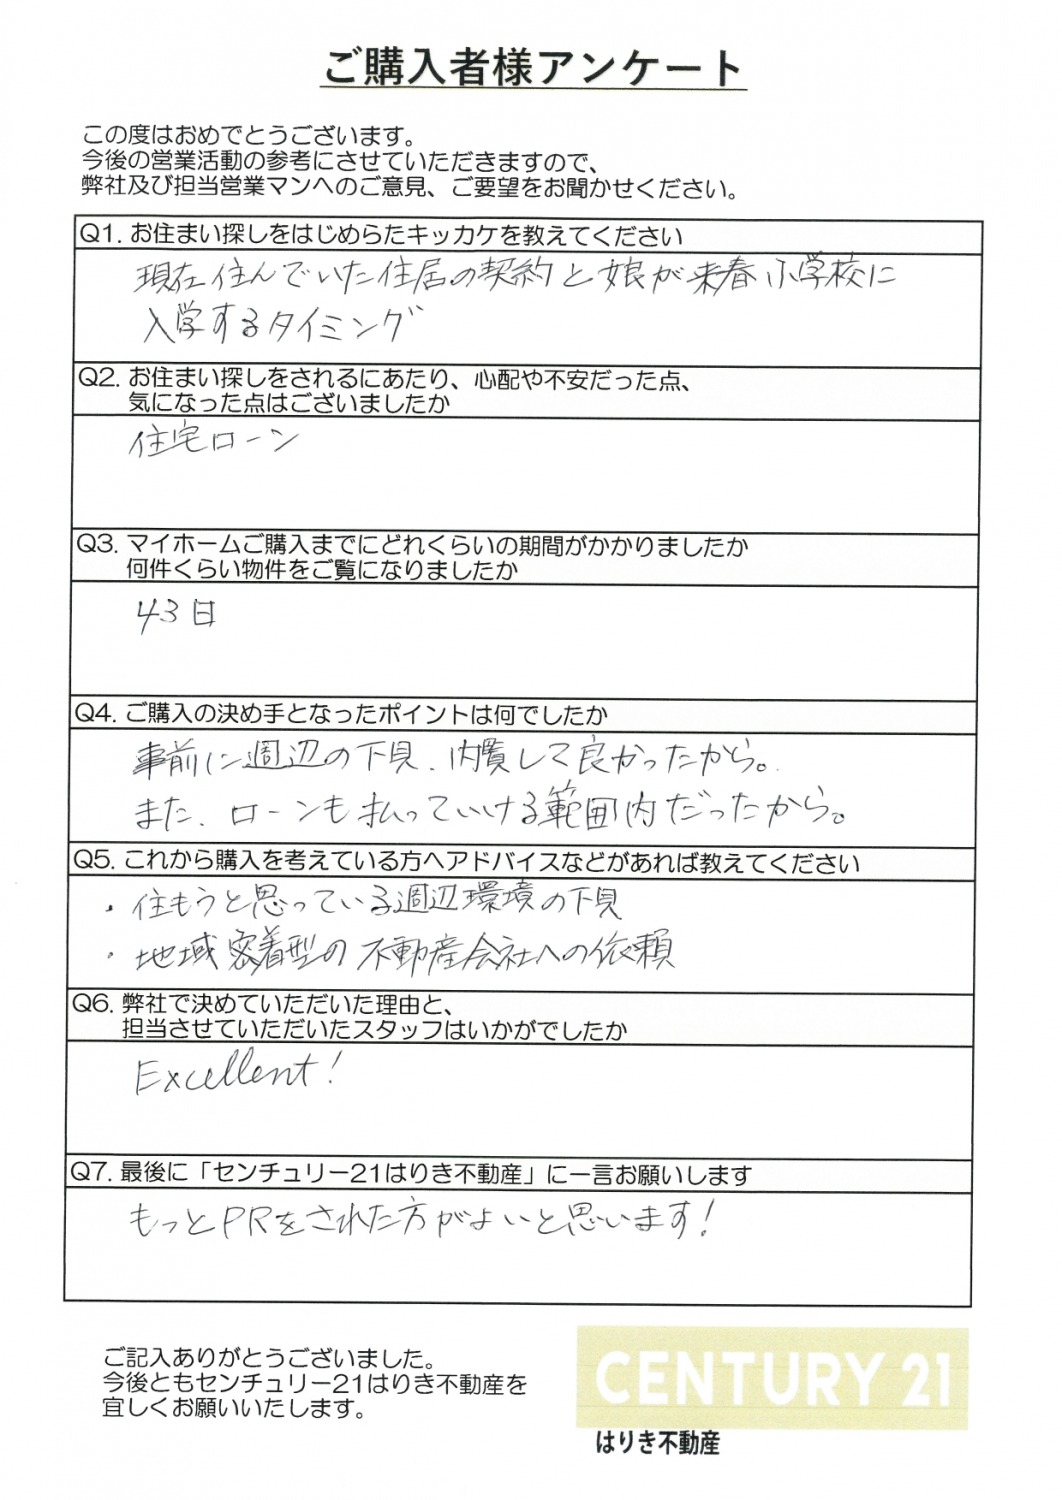 ご購入者様アンケート
この度はおめでとうございます。
今後の営業活動の参考にさせていただきますので、
弊社及び担当営業マンへのご意見、ご要望をお聞かせください。
Q1. お住まい探しをはじめらたキッカケを教えてください
現在住んでいた住居の契約と娘が来春小学校に
入学するタイミング
Q2. お住まい探しをされるにあたり、心配や不安だった点、
気になった点はございましたか
住宅ローン
Q3. マイホームご購入までにどれくらいの期間がかかりましたか
何件くらい物件をご覧になりましたか
43日
Q4. ご購入の決め手となったポイントは何でしたか
事前に週辺の下見、内覧して良かったから。
また、ローンも払っていける範囲内だったから。
Q5. これから購入を考えている方へアドバイスなどがあれば教えてください
・住もうと思っている週辺環境の下見
・地域密着型の不動産会社への依頼
Q6. 弊社で決めていただいた理由と、
担当させていただいたスタッフはいかがでしたか
Excellent!
Q7. 最後に「センチュリー21はりき不動産」に一言お願いします
もっとPRをされた方がよいと思います!
ご記入ありがとうございました。
今後ともセンチュリー21はりき不動産を
宜しくお願いいたします。
CENTURY 21
はりき不動産